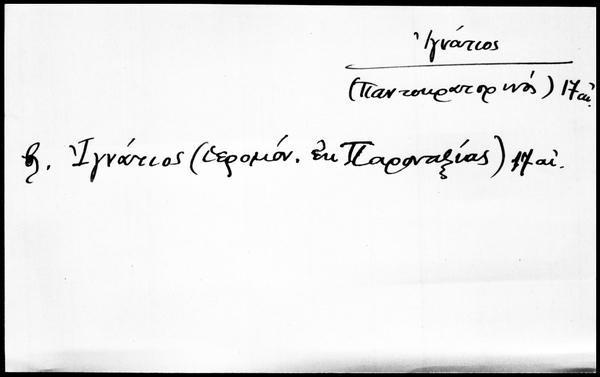 Ἰγνάτιος
(Παντοκρατορινός) 17 αἰ.
βλ. Ἰγνάτιος (ἱερομόν. ἐκ Παροναξίας) 17 αἰ.